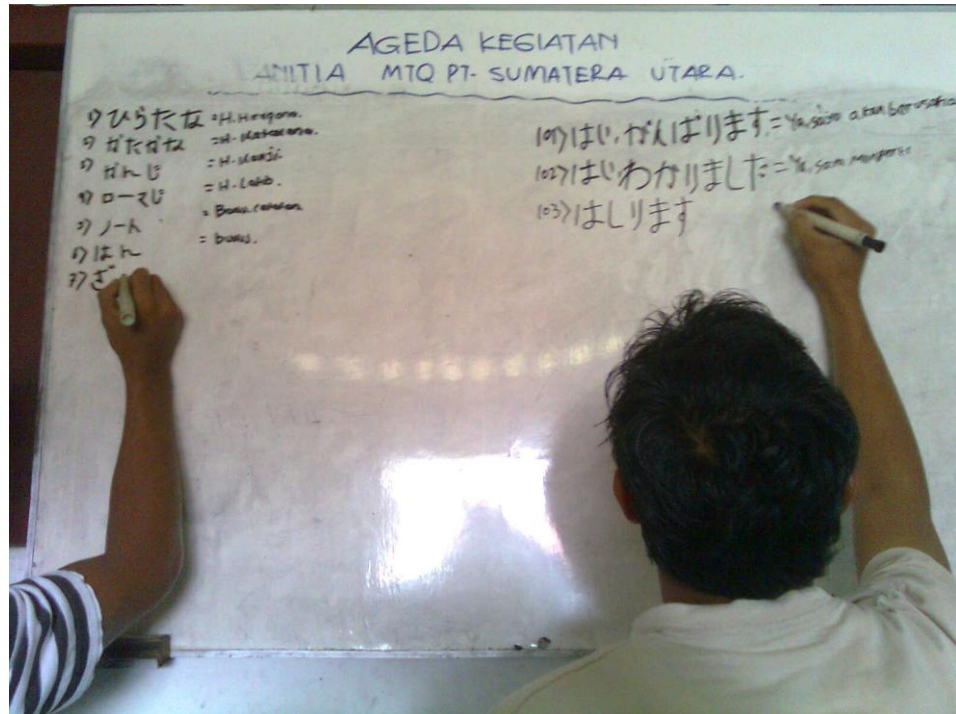 AGEDA KEGIATAN
ANITIA MTQ PT. SUMATERA UTARA.
1) ひらたな = H. Hiragana.
2) かたがな = H. Katakana.
3) がんじ = H. Kanji.
4) ローマじ = H. Latib.
5) ノート = Buku catatan
6) ほん = buku.
7) ざ
101) はい、がんばります = Ya, saya akan berusaha
102) はい わかりました = Ya, saya mengerti
103) はしります